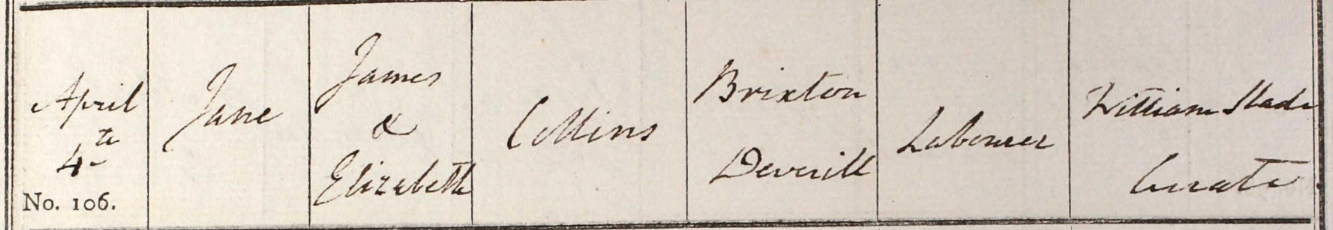 April
4th
No. 106.
Jane
James
&
Elizabeth
Collins
Brixton
Deverill
Labourer
William Slade
Curate